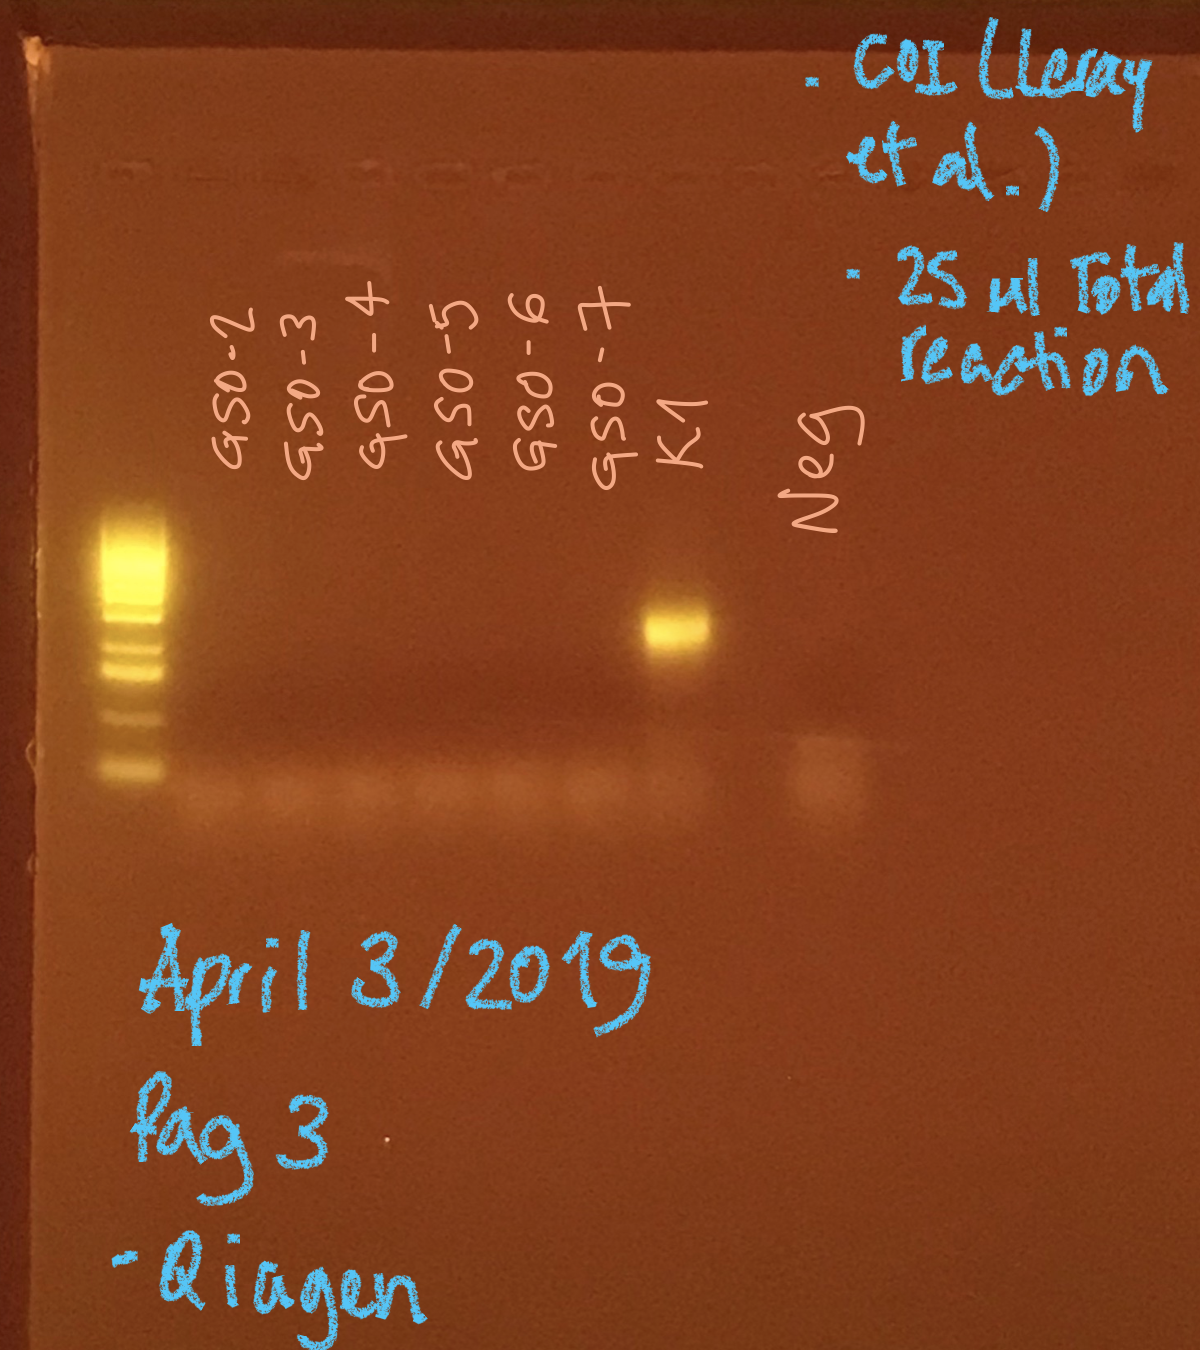 · COI (Leray
et al.)
· 25 ul Total
reaction
GSO-2
GSO-3
GSO-4
GSO-5
GSO-6
GSO-7
K1
Neg
April 3/2019
Pag 3
- Qiagen